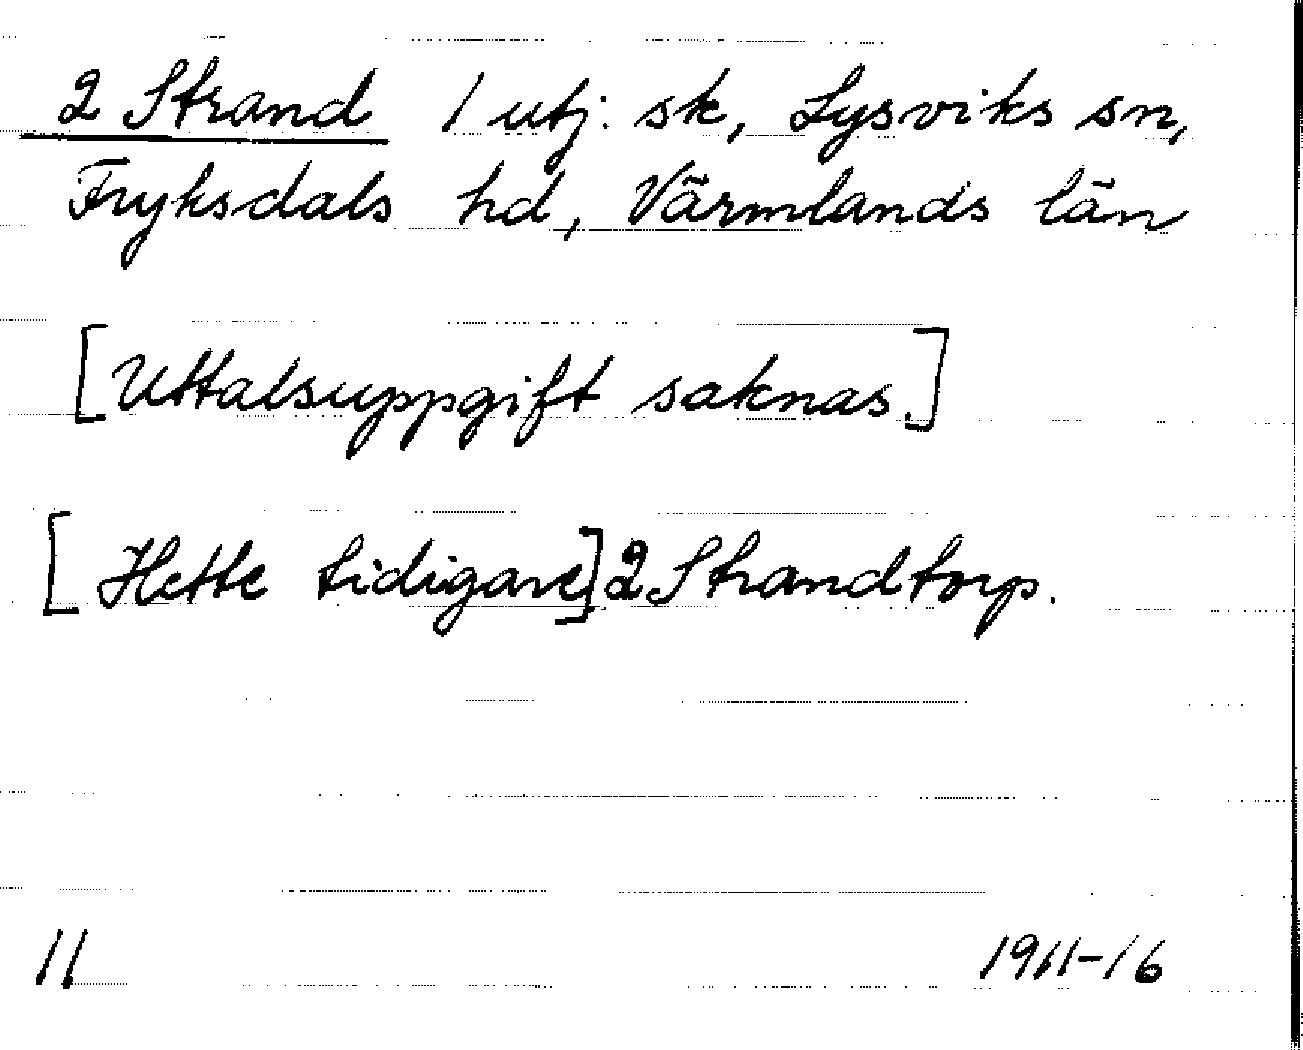 2 Strand 1 utj: sk, Lysviks sn,
Fryksdals hd, Värmlands län
[Uttalsuppgift saknas.]
[Hette tidigare] 2 Strandtorp.
11 1911-16